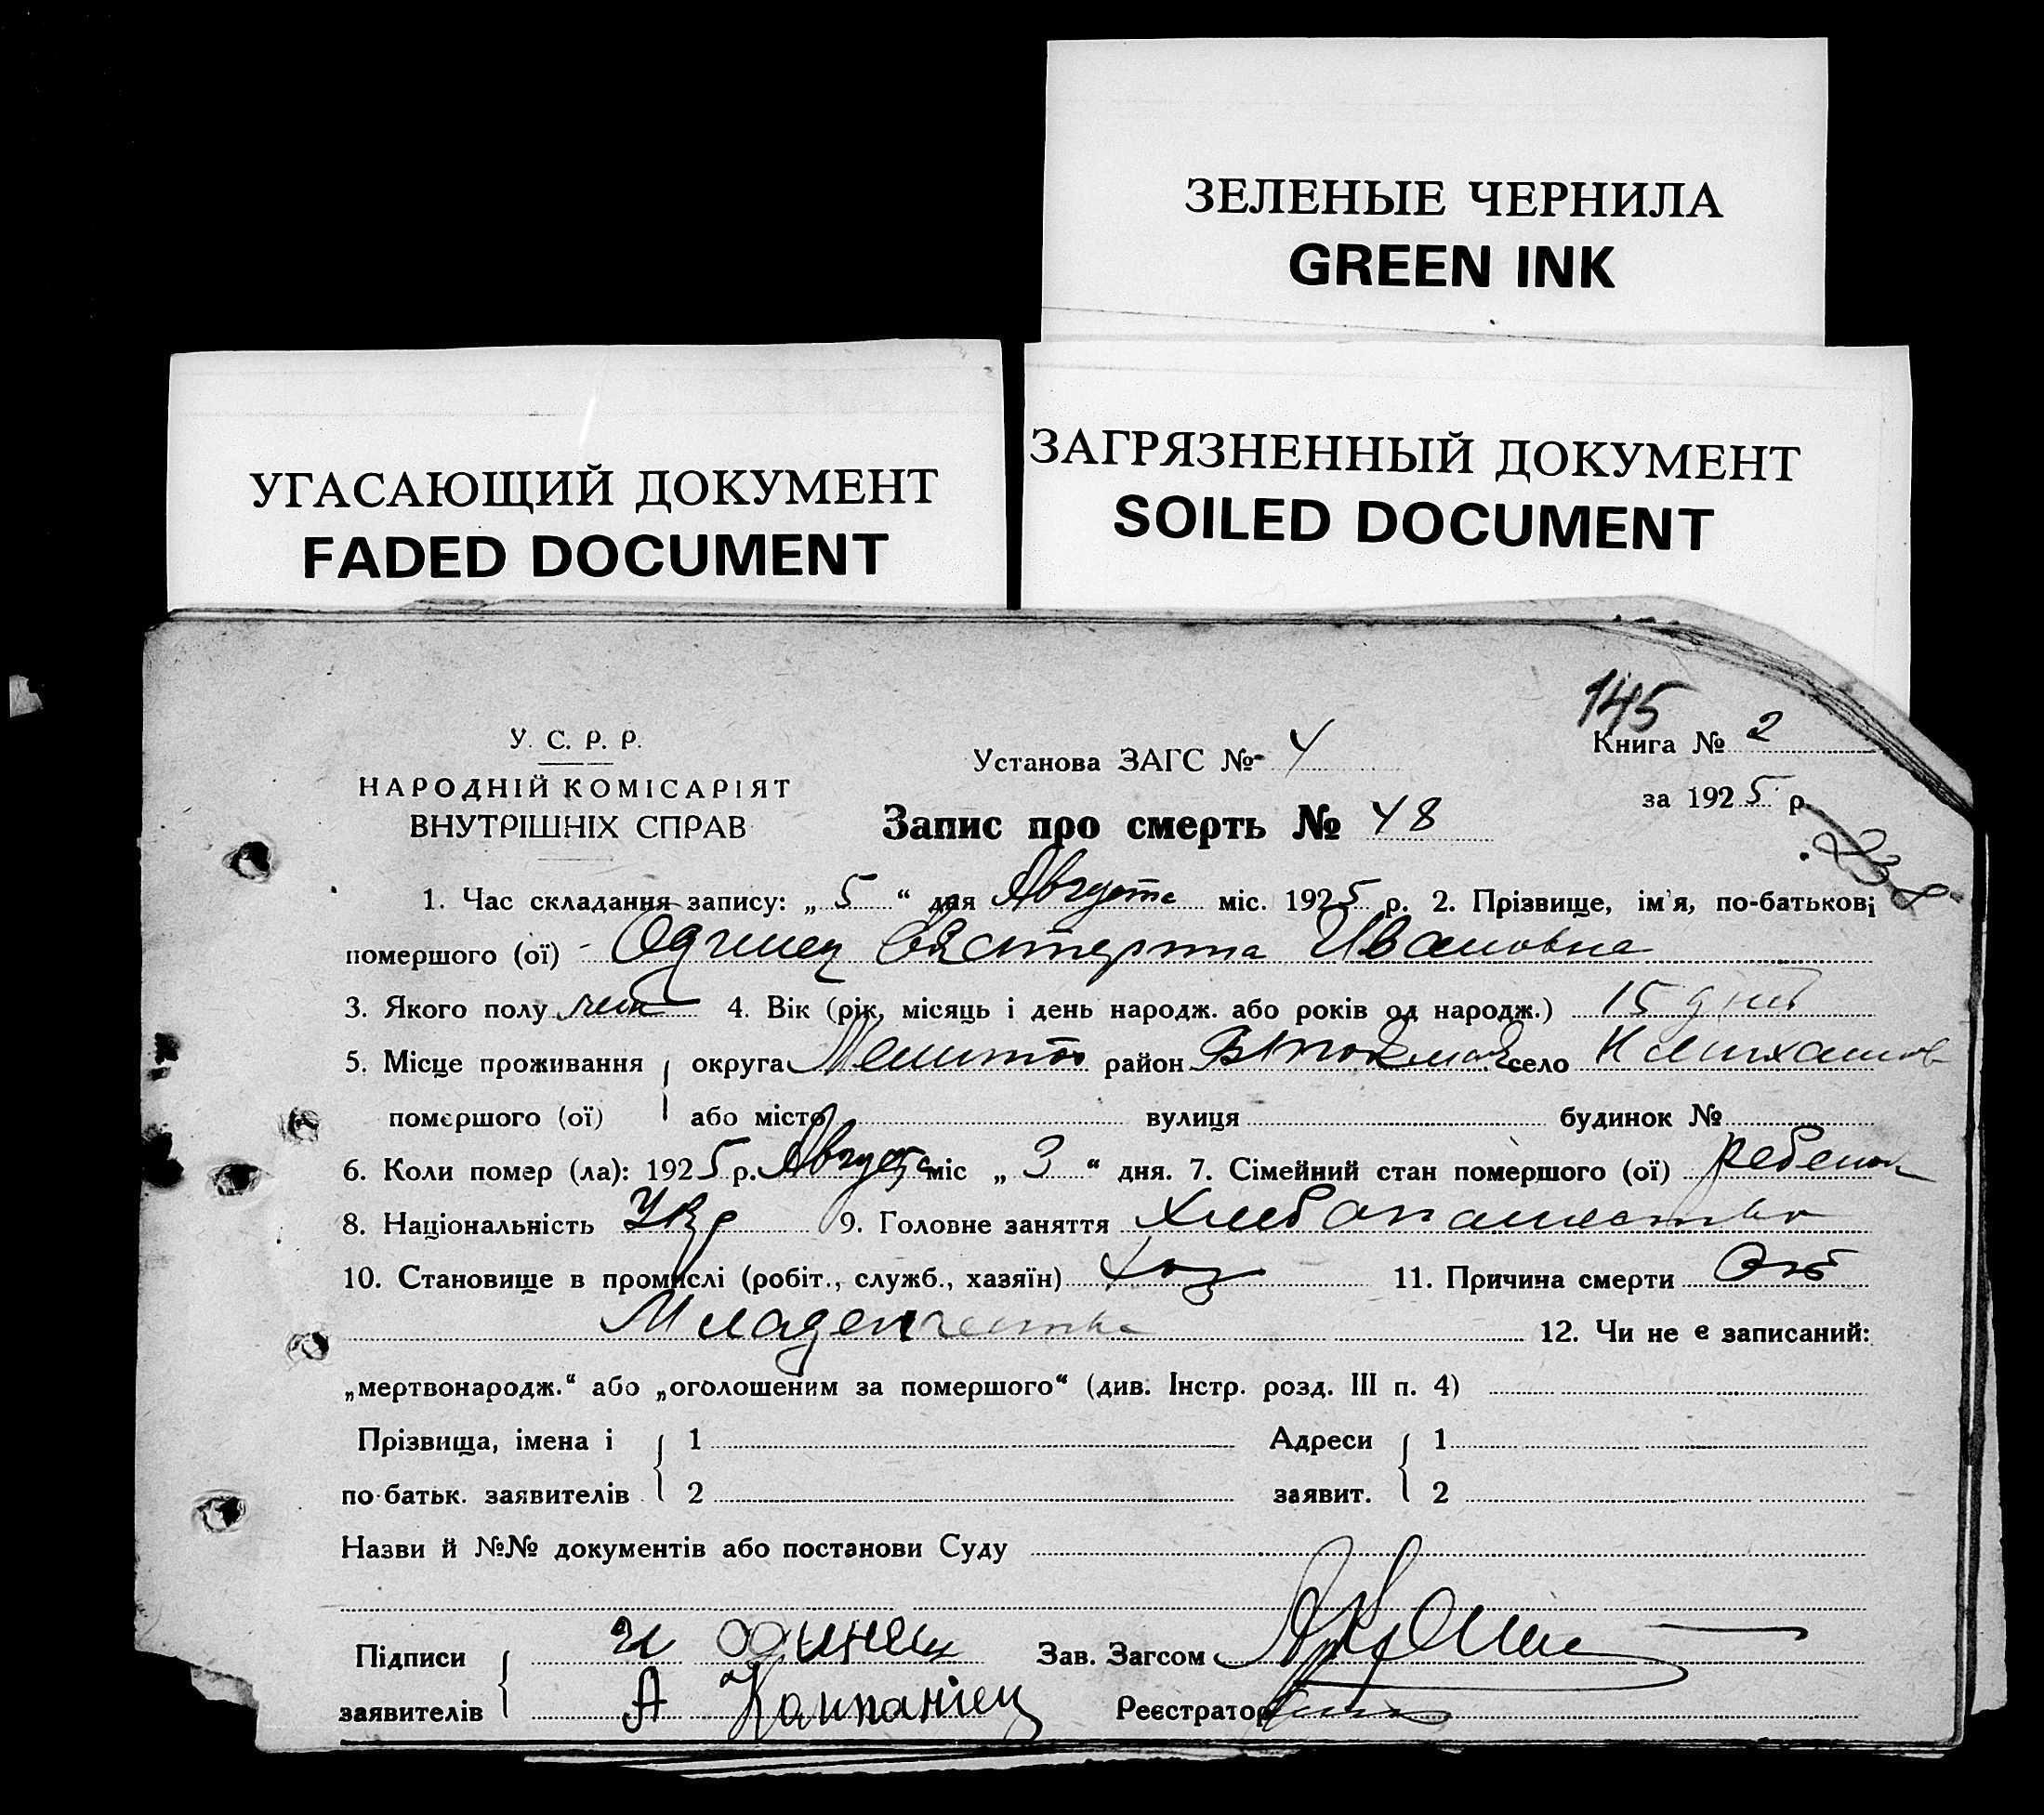 ЗЕЛЕНЫЕ ЧЕРНИЛА
GREEN INK
УГАСАЮЩИЙ ДОКУМЕНТ
FADED DOCUMENT
ЗАГРЯЗНЕННЫЙ ДОКУМЕНТ
SOILED DOCUMENT
145
У. С. Р. Р.
НАРОДНІЙ КОМІСАРІЯТ
ВНУТРІШНІХ СПРАВ
Установа ЗАГС № 4
Книга № 2
за 1925 р.
Запис про смерть № 48
1. Час складання запису: „5“ дня Августа міс. 1925 р. 2. Прізвище, ім'я, по-батькові
помершого (ої) Одинец Екатерина Ивановна
3. Якого полу жен 4. Вік (рік, місяць і день народж. або років од народж.) 15 дней
5. Місце проживання округа район село
помершого (ої) або місто вулиця будинок №
6. Коли помер (ла): 1925 р. Августа міс „3“ дня. 7. Сімейний стан помершого (ої) ребенок
8. Національність Укр 9. Головне заняття Хлебопашество
10. Становище в промислі (робіт., служб., хазяїн) Хоз 11. Причина смерти От
Младенчества 12. Чи не є записаний:
„мертвонародж.“ або „оголошеним за помершого“ (див. Інстр. розд. III п. 4)
Прізвища, імена і 1 Адреси 1
по-батьк. заявителів 2 заявит. 2
Назви й №№ документів або постанови Суду
Підписи И Одинец Зав. Загсом
заявителів А Компаніец Реєстратор